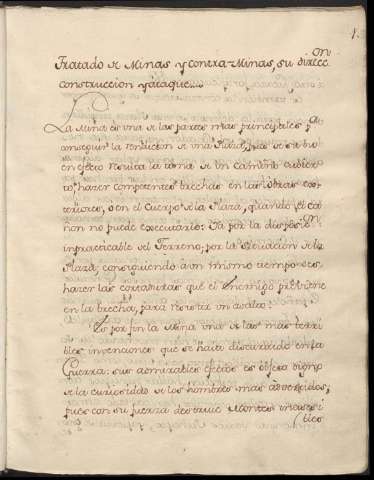 1.
Tratado de Minas y contra-Minas, su direcc.on
construccion y ataque.
La Mina es una de las partes mas principales p.a
conseguir la rendicion de una Plaza, pues de su bu
en efecto resulta la toma de un camino cubier
to, hazer competentes brechas en las obras ex-
teriores, o en el Cuerpo de la Plaza, quando el Ca
ñon no puede executarlo: Ya por la disposic.on
impracticable del Terreno, ya por la situacion de la
Plaza, consiguiendo a un mismo tiempo des
hazer las cortaduras que el Enemigo previene
en la brecha, para resistir un asalto.
Es por fin la Mina una de las mas terri
bles invenciones que se han discurrido en la
Guerra: sus admirables efectos es objeto digno
de la curiosidad de los hombres mas advertidos,
pues con su fuerza destruie Montes inacesi
bles